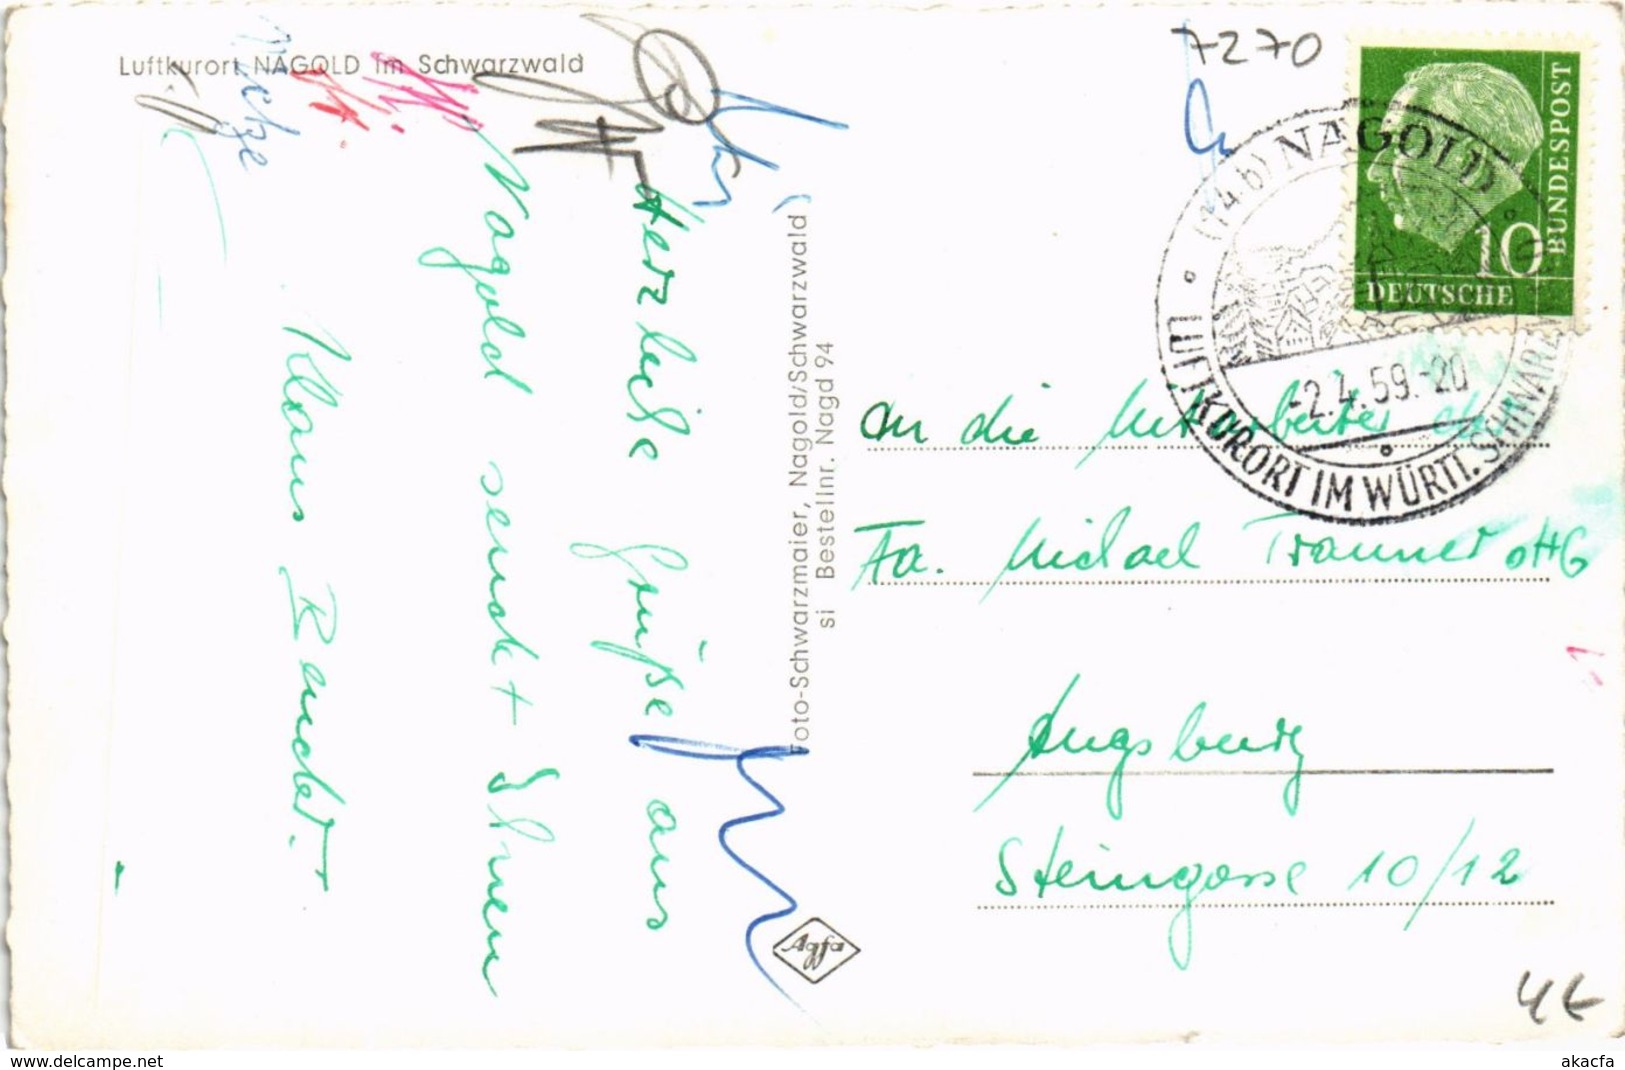 Luftkurort NAGOLD im Schwarzwald
Herzliche Grüße aus
Nagold sendet Ihnen
Klaus
Foto-Schwarzmaier, Nagold/Schwarzwald
si Bestellnr. Nagd 94
Agfa
7270
BUNDESPOST
10
DEUTSCHE
(14b) NAGOLD
-2.4.59.-20
LUFTKURORT IM WÜRTT. SCHWARZW
An die Mitarbeiter der
Fa. Michael Trauner OHG
Augsburg
Steingasse 10/12
4€
www.delcampe.net
akacfa